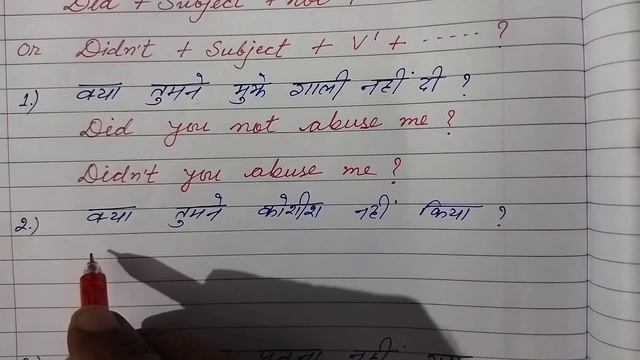 Did + Subject + not
Or Didn't + Subject + V¹ + ----- ?
1.) क्या तुमने मुझे गाली नहीं दी ?
Did you not abuse me ?
Didn't you abuse me ?
2.) क्या तुमने कोशीश नहीं किया ?
नहीं